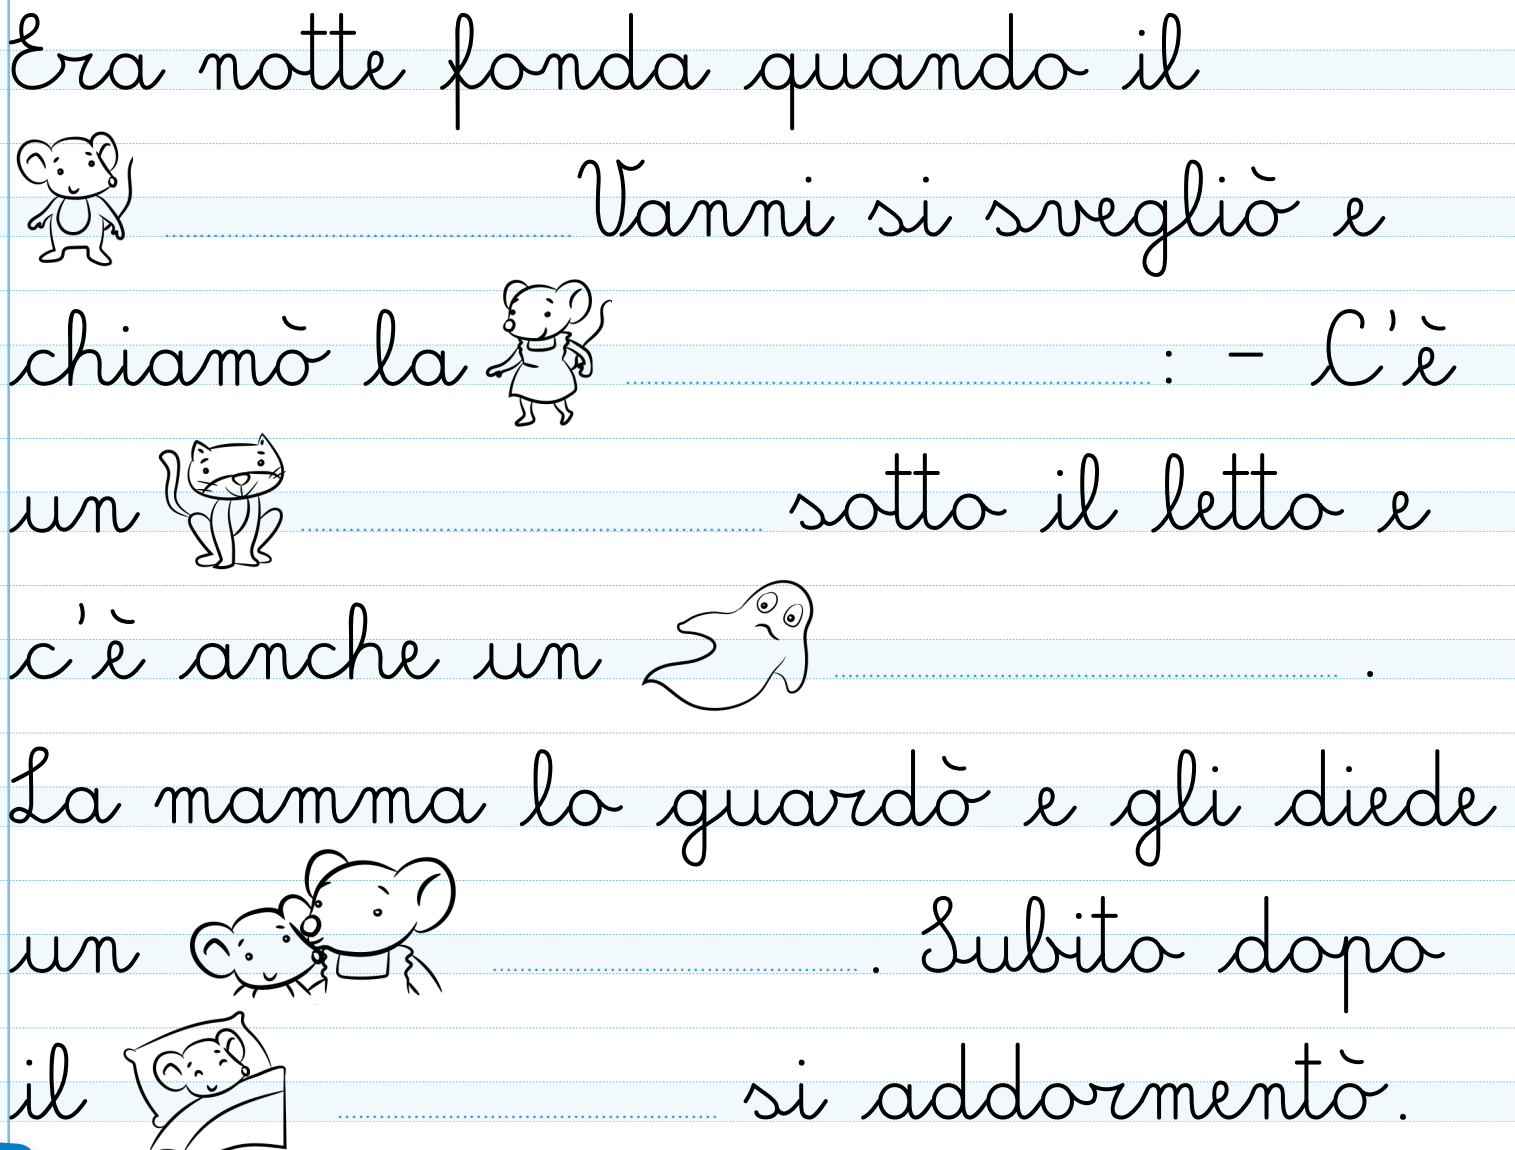 Era notte fonda quando il
Vanni si svegliò e
chiamò la : - C'è
un sotto il letto e
c'è anche un .
La mamma lo guardò e gli diede
un . Subito dopo
il si addormentò.